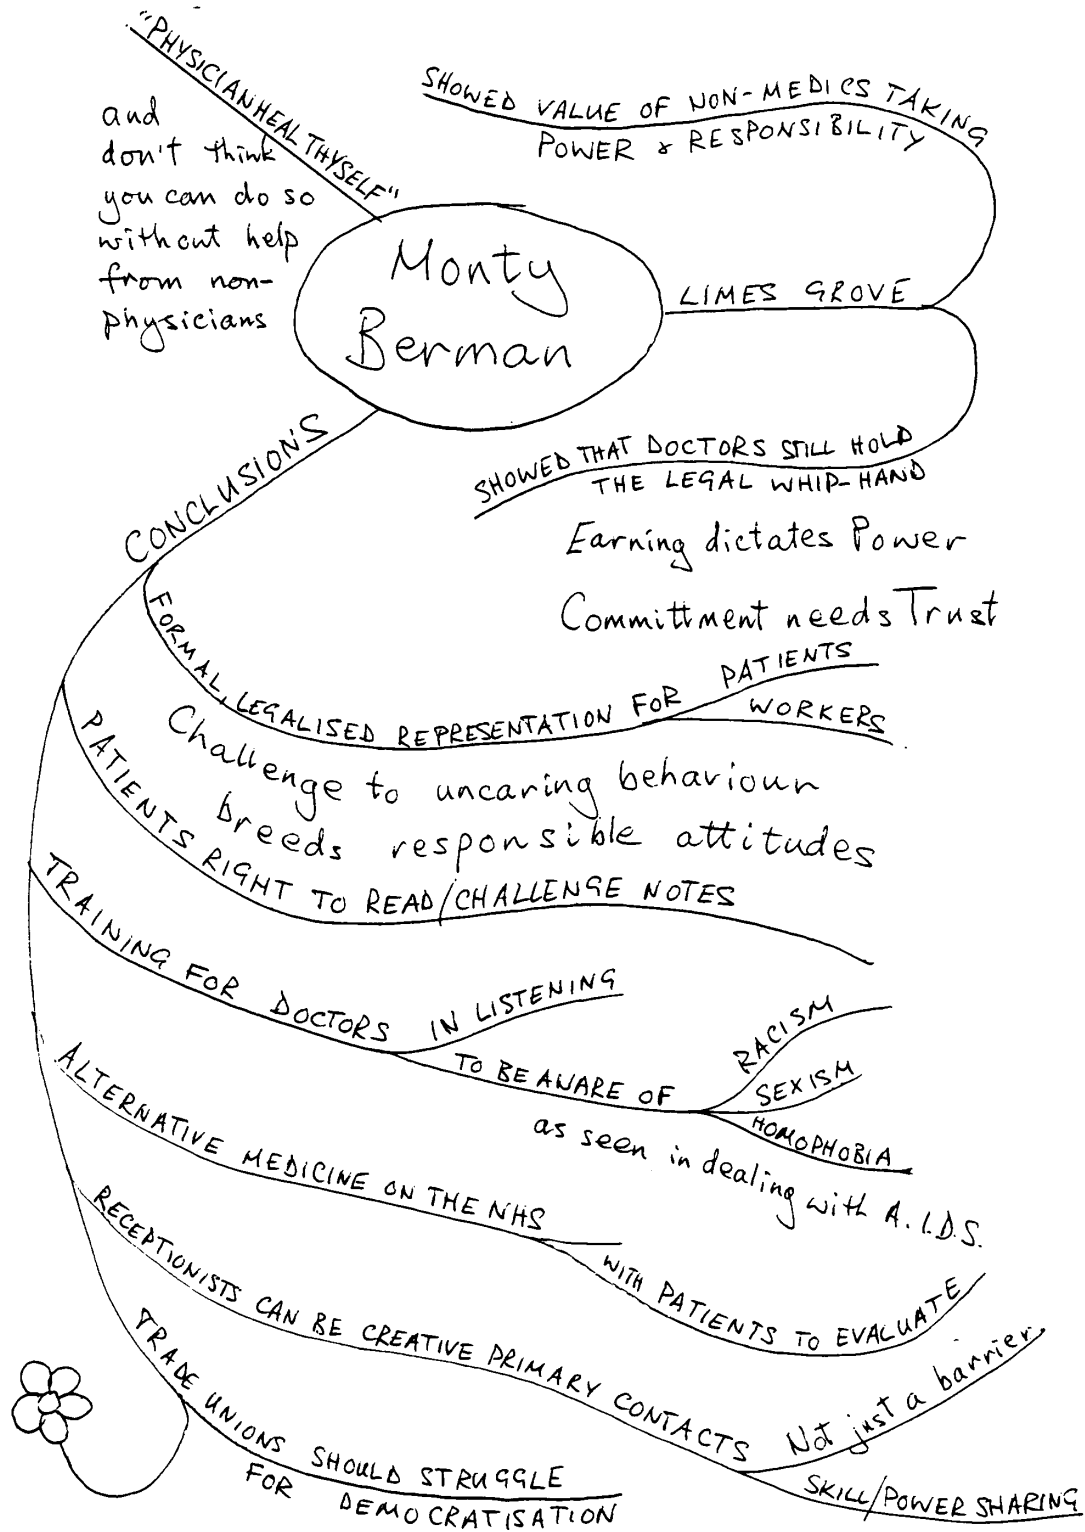 "PHYSICIAN HEAL THYSELF"
and
don't think
you can do so
without help
from non-
physicians
Monty
Berman
LIMES GROVE
SHOWED VALUE OF NON-MEDICS TAKING
POWER & RESPONSIBILITY
SHOWED THAT DOCTORS STILL HOLD
THE LEGAL WHIP-HAND
Earning dictates Power
Committment needs Trust
CONCLUSIONS
FORMAL, LEGALISED REPRESENTATION FOR
PATIENTS
WORKERS
Challenge to uncaring behaviour
breeds responsible attitudes
PATIENTS RIGHT TO READ/CHALLENGE NOTES
TRAINING FOR DOCTORS
IN LISTENING
TO BE AWARE OF
RACISM
SEXISM
HOMOPHOBIA
as seen in dealing with A.I.D.S.
ALTERNATIVE MEDICINE ON THE NHS
WITH PATIENTS TO EVALUATE
RECEPTIONISTS CAN BE CREATIVE PRIMARY CONTACTS
Not just a barrier
SKILL/POWER SHARING
TRADE UNIONS SHOULD STRUGGLE
FOR DEMOCRATISATION